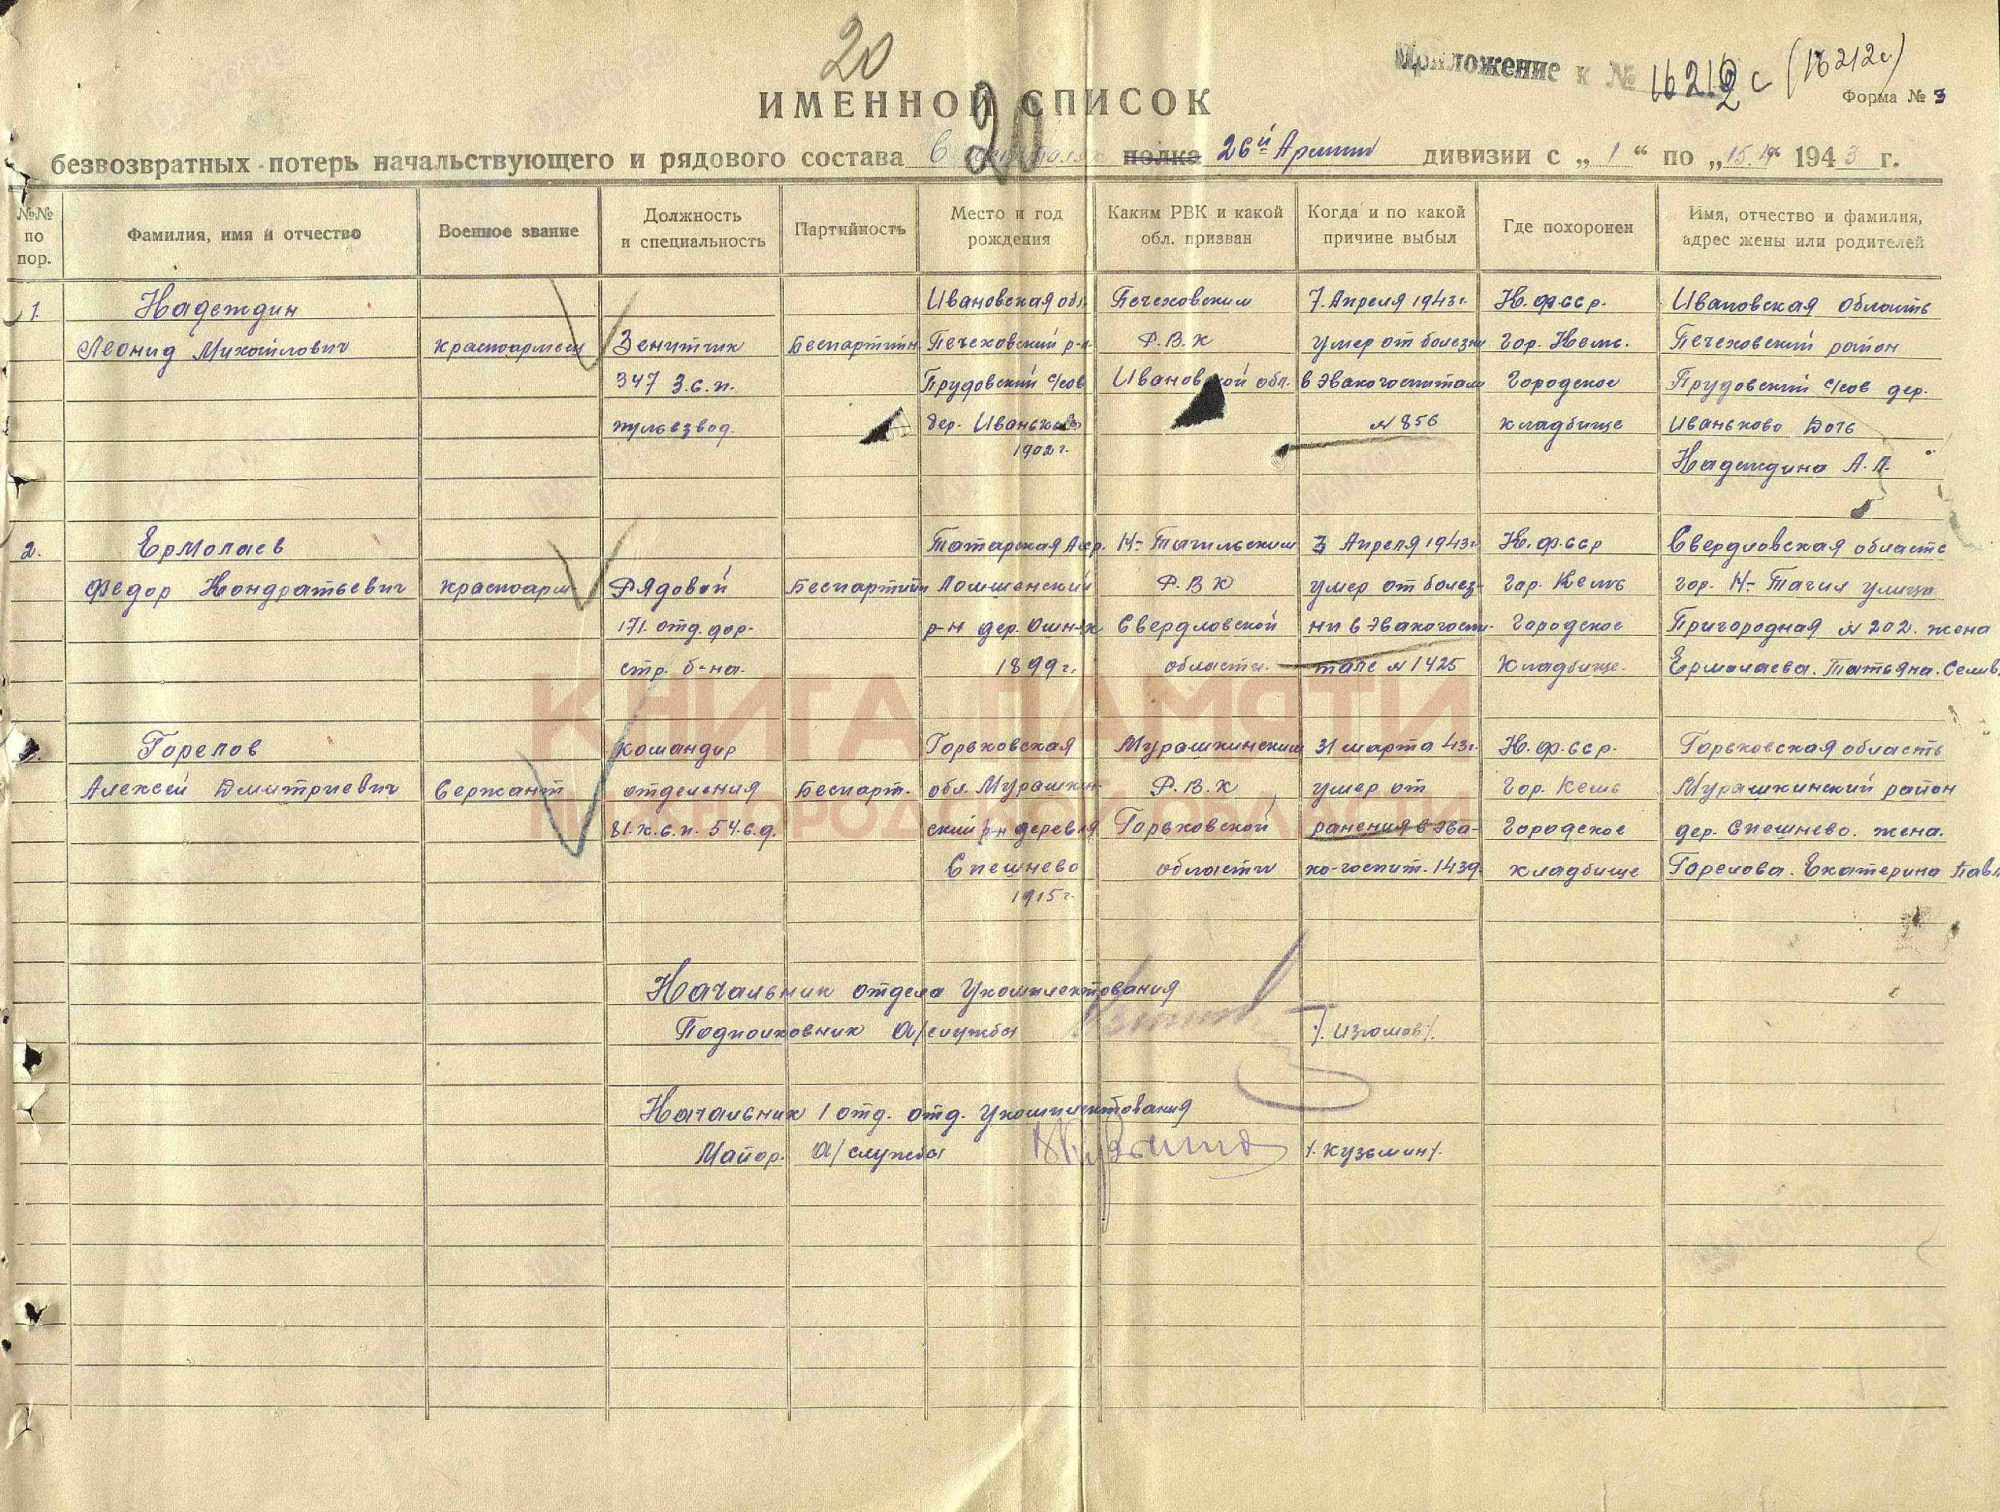 20
Приложение к № 16212с (16212с)
Форма № 3
ИМЕННОЙ СПИСОК
20
безвозвратных потерь начальствующего и рядового состава полка 26й Армии дивизии с „1“ по „15.IV“ 1943 г.
№№ по пор.
Фамилия, имя и отчество
Военное звание
Должность и специальность
Партийность
Место и год рождения
Каким РВК и какой обл. призван
Когда и по какой причине выбыл
Где похоронен
Имя, отчество и фамилия, адрес жены или родителей
1. Надеждин Ивановская обл. Печеховским 7. Апреля 1943г. К.ф.сср. Ивановская область
Леонид Михайлович красноармеец Зенитчик Беспартийн Печеховский р-н Р.В.К умер от болезни гор. Кемь. Печеховский район
347 З.с.п. Прудовский с/сов Ивановской обл. в Эвакогоспитале Городское Прудовский с/сов дер.
пульвзвод. дер. Иваньково №856 кладбище Иваньково Дочь
1902г. Надеждина А.Л.
2. Ермолаев Татарская Асср. Н-Тагильским 3 Апреля 1943г К.ф.сср Свердловская область
Федор Кондратьевич красноарм Рядовой Беспартийн Р.В.К умер от болез- гор. Кемь гор. Н-Тагил улица
171. отд. дор. р-н дер. Свердловской ни в Эвакогоспи- Городское Пригородная №202. жена
стр. б-на. 1899г. области. тале №1425 Кладбище. Ермолаева. Татьяна. Селив.
Горелов командир Горьковская Мурашкинским 31 марта 43г. К.ф.сср. Горьковская область
Алексей Дмитриевич Сержант отделения Беспарт. обл. Мурашкин- Р.В.К умер от гор. Кемь Мурашкинский район
81.К.с.п. 54.с.д. ский р-н деревня Горьковской ранения в Эва- Городское дер. Спешнево. жена.
Спешнево области ко-госпит. 1439. кладбище Горелова. Екатерина Павл
1915г.
КНИГА ПАМЯТИ
Начальник отдела Укомплектования
Подполковник А/службы /. Изюмов/.
Начальник 1 отд. отд. Укомплектования
Майор. А/службы /. Кузьмин/.